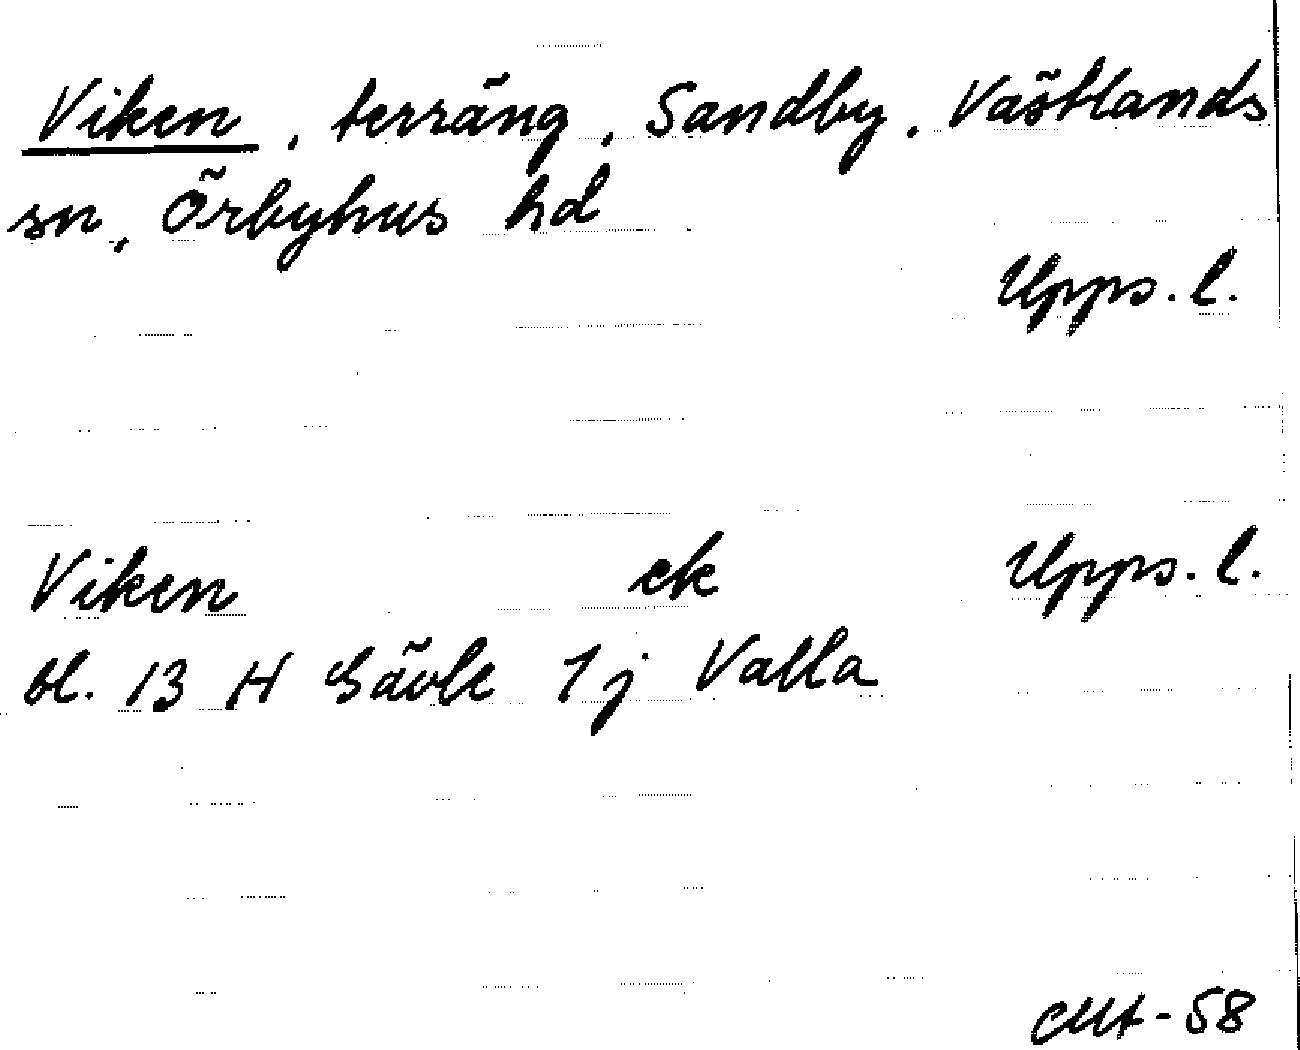 Viken, terräng, Sandby, Västlands
sn, Örbyhus hd
Upps. l.
Viken ek Upps. l.
bl. 13 H Gävle 1 j Valla
-58